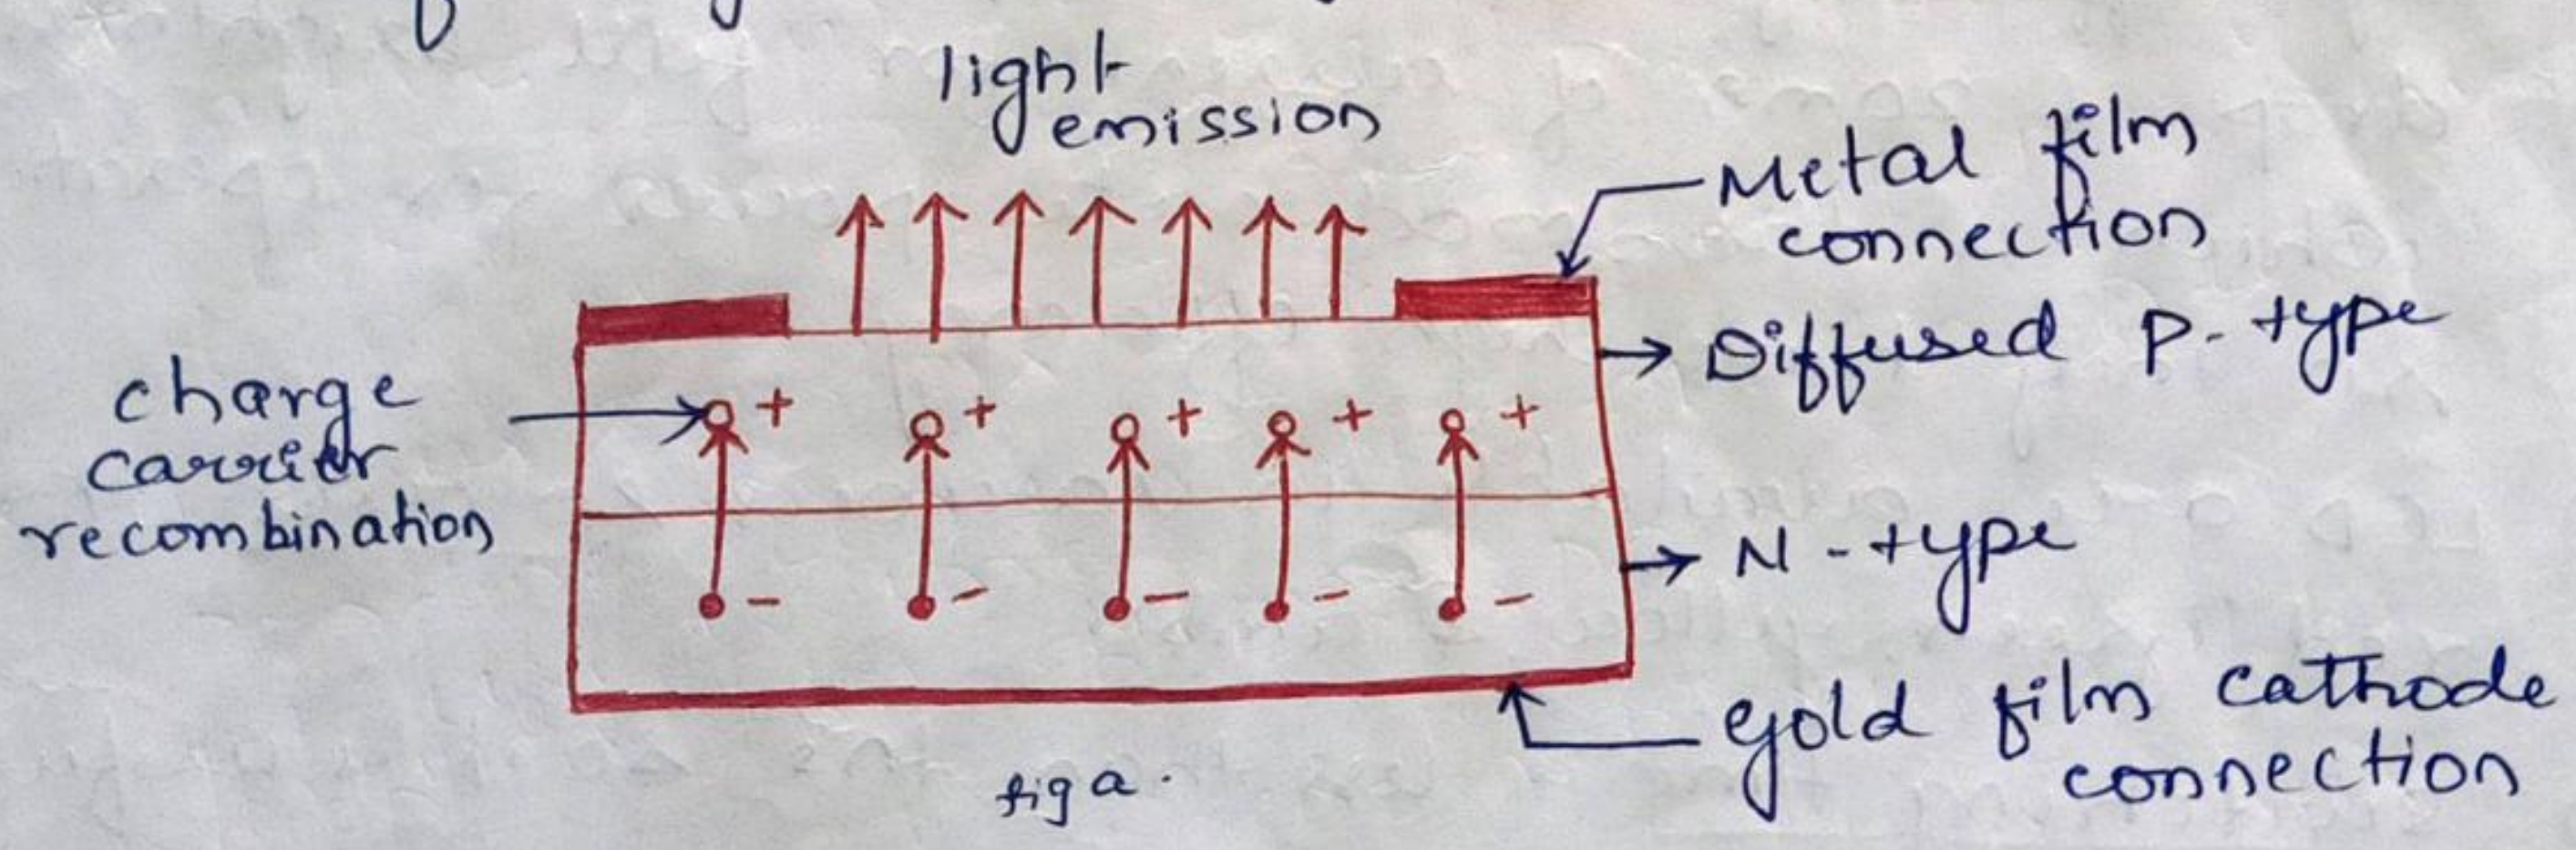 light
emission
Metal film
connection
Diffused P-type
charge
carrier
recombination
+ + + + +
N-type
- - - - -
Gold film cathode
connection
fig a.